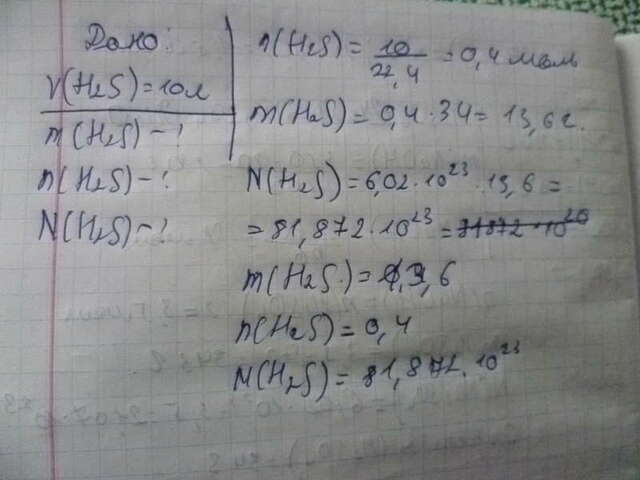 Дано:
V(H₂S)=10л
m(H₂S)-?
n(H₂S)-?
N(H₂S)-?
n(H₂S)=10/22,4=0,4 моль
m(H₂S)=0,4·34=13,6г.
N(H₂S)=6,02·10²³·13,6=
=81,872·10²³=81872·10²⁰
m(H₂S)=13,6
n(H₂S)=0,4
N(H₂S)=81,872·10²³